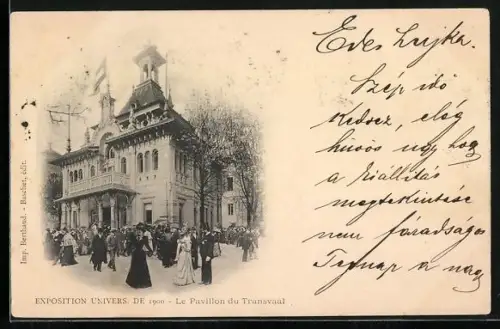 Imp. Berthaud. - Ruschet, édit.
EXPOSITION UNIVERS. DE 1900 - Le Pavillon du Transvaal
Edes
Szép idő
Kedvez, elég
hüvös úgy hogy
a kiállítás
megtekintése
nem fáradságos
Tegnap a nagy